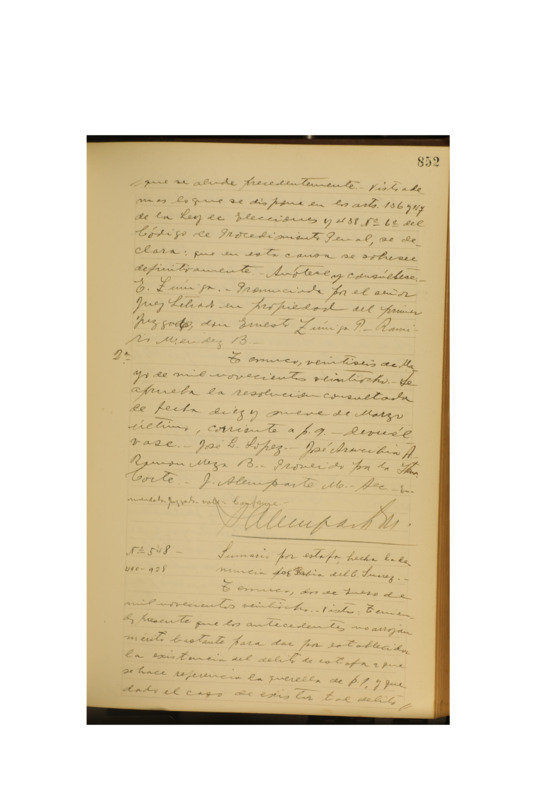 852
que se alude precedentemente - Visto ade
mas lo que se dispone en los arts. 136 y 47
de la Ley de Elecciones y 438, Nº 6º del
Código de Procedimiento Penal, se de-
clara: que en esta causa se sobresee
definitivamente - Anótese y consúltese. -
E. Zuñiga. - Pronunciada por el señor
Juez Letrado en propiedad del primer
Juzgado, don Ernesto Zuñiga P. - Rami-
ro Mendez B -
2ª
Temuco, veintiseis de Ma
yo de mil novecientos veintiocho - Se
aprueba la resolucion consultada
de fecha diez y nueve de Marzo
último, corriente a f. 9 - Devuél
vase - José D. López - José Arancibia A.
Ramon Meza B. - Proveido por la Iltma
Corte. J. Alemparte M. - Sec -
juzgado - vale - Conforme -
J Alemparte M.
Nº 548 -
Sumario por estafa, hecha la de
nuncia por Suarez. -
Temuco, dos de Enero de
mil novecientos veintiocho. Vistos: Tenien
do presente que los antecedentes no arrojan
mérito bastante para dar por establecida
la existencia del delito de estafa a que
se hace referencia la querella de f 1, y que
dado el caso de existir tal delito